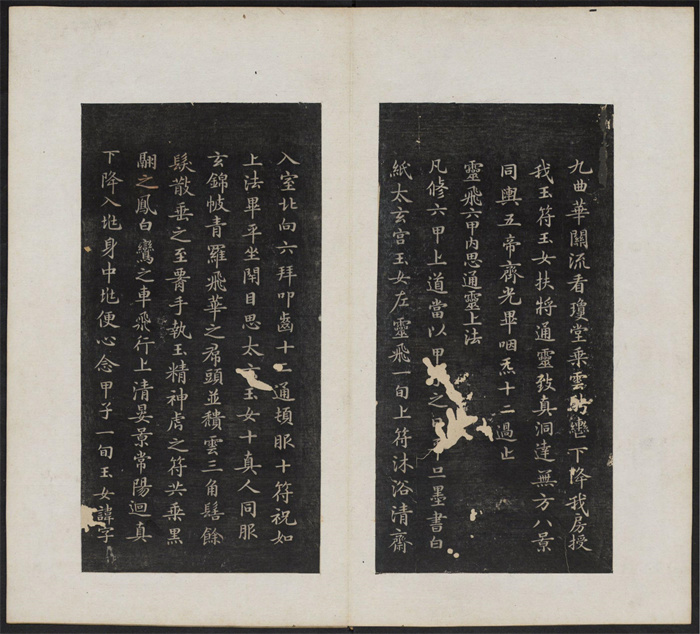 九曲華關流看瓊堂乘雲騁轡下降我房授
我玉符玉女扶將通靈致真洞達無方八景
同輿五帝齊光畢咽炁十二過止
靈飛六甲内思通靈上法
凡修六甲上道當以甲之旦墨書白
紙太玄宮玉女左靈飛一旬上符沐浴清齋
入室北向六拜叩齒十二通頓服十符祝如
上法畢平坐閉目思太玉女十真人同服
玄錦帔青羅飛華之帬頭並穨雲三角髻餘
髮散垂之至腰手執玉精神虎之符共乘黑
翮之鳳白鸞之車飛行上清晏景常陽迴真
下降入兆身中兆便心念甲子一旬玉女諱字